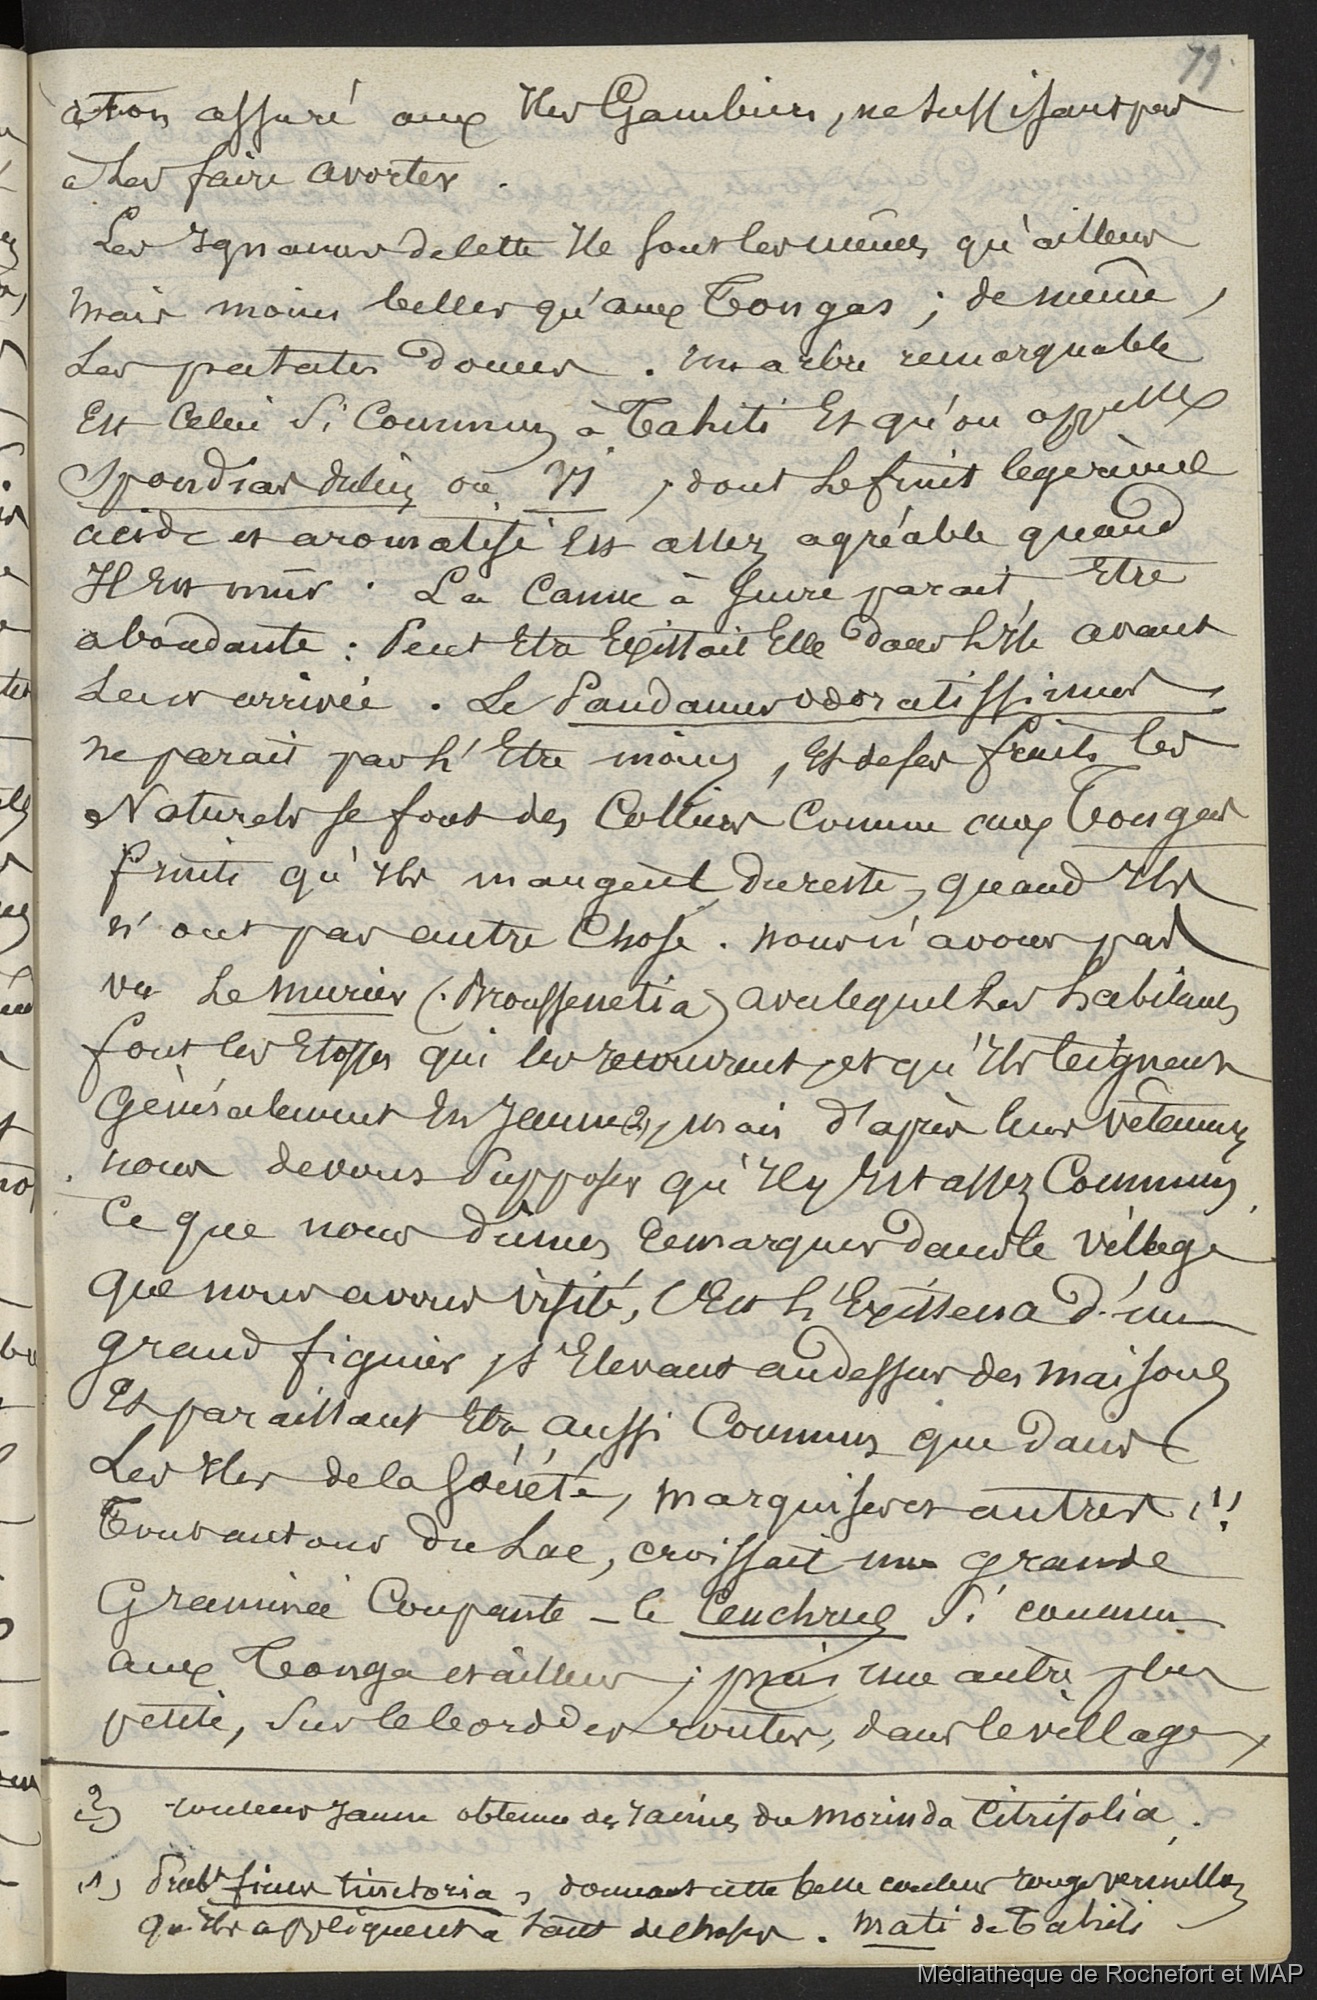 79
a-t-on assuré aux Iles Gambier, ne suffisant pas
à les faire avorter.
Les Ignames de cette Ile sont les mêmes qu'ailleurs
mais moins belles qu'aux Tongas ; de même,
les patates douces. Un arbre remarquable
Est celui si Commun à Tahiti Et qu'on appelle
Spondias dulcis ou Vi, dont le fruit legerement
acide et aromatisé Est assez agréable quand
Il Est mûr. La Canne à Sucre parait Etre
abondante : Peut Etre Existait Elle dans l'Ile avant
leur arrivée. Le Pandanus odoratissimus
ne parait pas l'Etre moins, Et de ses fruits les
Naturels se font des Colliers Comme aux Tongas
fruits qu'Ils mangent, du reste, quand Ils
n'ont pas autre Chose. nous n'avons pas
vu le murier (Broussenetia) avec lequel les habitans
font les Etoffes qui les recouvrent, et qu'Ils teignent
Généralement En Jaune (2), mais d'après leurs vêtemens
nous devons Supposer qu'Il y Est assez Commun,
Ce que nous dûmes remarquer dans le village
que nous avons visité, C'Est l'Existence d'un
grand figuier s'Elevant audessus des maisons
Et paraissant Etre aussi Commun que dans
Les Iles de la Société, marquises et autres (1)
Tout autour du Lac, croissait une grande
Graminée Coupante – le Cenchrus Si commun
aux Tonga et ailleurs ; puis une autre plus
petite, Sur le bord des routes, dans le village,
(2) couleur Jaune obtenue des racines du Morinda Citrifolia.
(1) Probt ficus tinctoria, donnant cette belle couleur rouge vermillon
qu'Ils appliquent à tant de choses. Mati de Tahiti
Médiathèque de Rochefort et MAP